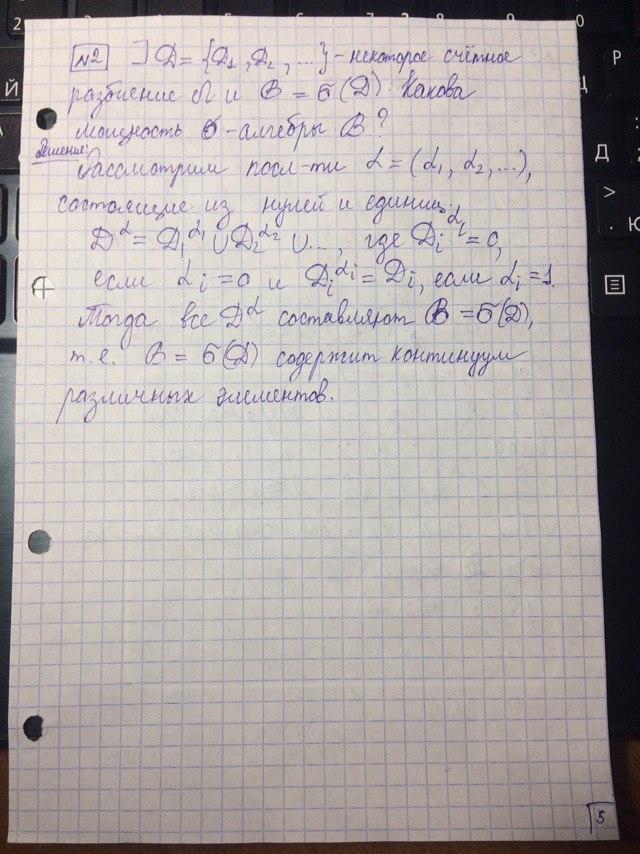 №2 ] D = {D₁, D₂, ...} - некоторое счётное
разбиение Ω и B = σ(D). Какова
мощность σ-алгебры B?
Решение:
Рассмотрим посл-ти α = (α₁, α₂, ...),
состоящие из нулей и единиц.
D^α = D₁^α₁ ∪ D₂^α₂ ∪ ..., где Dᵢ^αᵢ = 0,
если αᵢ = 0 и Dᵢ^αᵢ = Dᵢ, если αᵢ = 1.
Тогда все D^α составляют B = σ(D),
т.е. B = σ(D) содержит континуум
различных элементов.
5